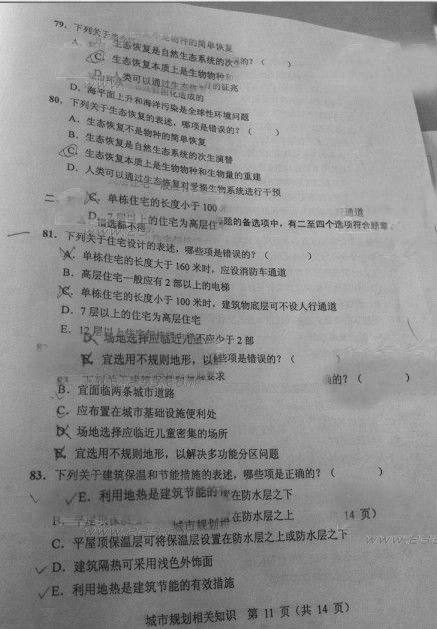 79. 下列关于
的简单恢复
A. 生态恢复是自然生态系统的次 的? ( )
C. 生态恢复本质上是生物物种和
D. 人类可以通过生态
D. 海平面上升和海洋污染是全球性环境问题
80. 下列关于生态恢复的表述,哪项是错误的? ( )
A. 生态恢复不是物种的简单恢复
B. 生态恢复是自然生态系统的次生演替
C. 生态恢复本质上是生物物种和生物量的重建
D. 人类可以通过生态恢复对受损生物系统进行干预
二
C. 单栋住宅的长度小于 100 通道
D. 7 层以上的住宅为高层住 题的备选项中,有二至四个选项符合题意。
错选都不得
81. 下列关于住宅设计的表述,哪些项是错误的? ( )
A. 单栋住宅的长度大于 160 米时,应设消防车通道
B. 高层住宅一般应有 2 部以上的电梯
C. 单栋住宅的长度小于 100 米时,建筑物底层可不设人行通道
D. 7 层以上的住宅为高层住宅
E. 12 层以上住宅
D. 场地选择应临近儿童 不应少于 2 部
E. 宜选用不规则地形,以解 些项是错误的? ( )
要求 的? ( )
B. 宜面临两条城市道路
C. 应布置在城市基础设施便利处
D. 场地选择应临近儿童密集的场所
E. 宜选用不规则地形,以解决多功能分区问题
83. 下列关于建筑保温和节能措施的表述,哪些项是正确的? ( )
E. 利用地热是建筑节能的 在防水层之下
B. 平屋顶保 城市规划相 在防水层之上 14 页)
C. 平屋顶保温层可将保温层设置在防水层之上或防水层之下
D. 建筑隔热可采用浅色外饰面
E. 利用地热是建筑节能的有效措施
城市规划相关知识 第 11 页(共 14 页)